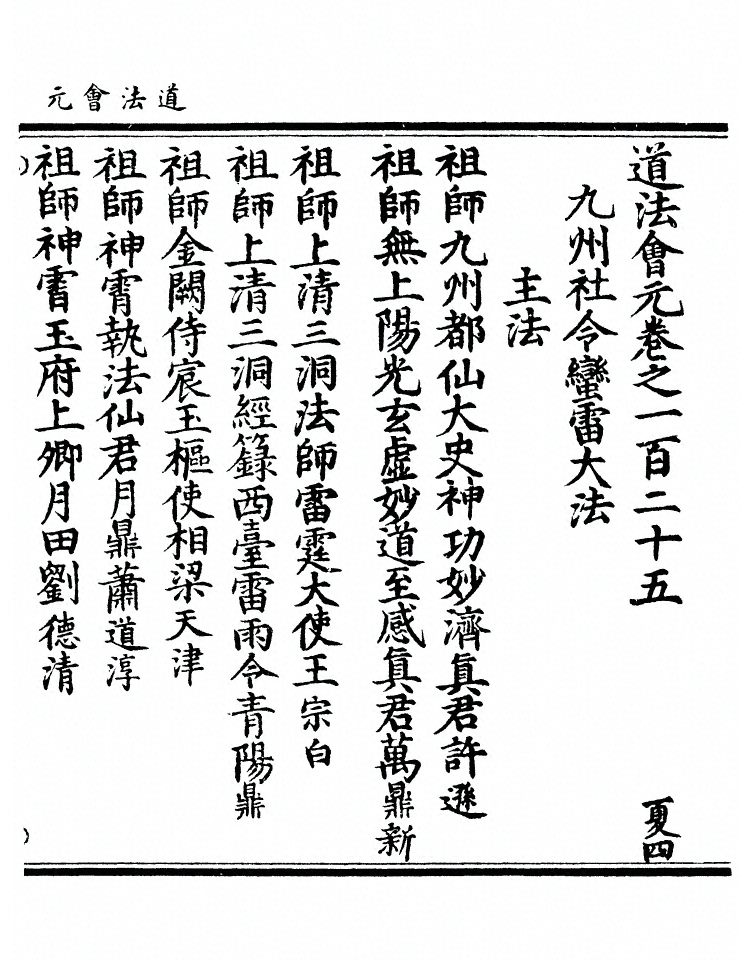 道法會元
道法會元卷之一百二十五 夏四
九州社令蠻雷大法
主法
祖師九州都仙大史神功妙濟眞君許遜
祖師無上陽光玄虛妙道至感眞君萬鼎新
祖師上清三洞法師雷霆大使王宗白
祖師上清三洞經籙西臺雷雨令青陽鼎
祖師金闕侍宸玉樞使相梁天津
祖師神霄執法仙君月鼎蕭道淳
祖師神霄玉府上卿月田劉德清